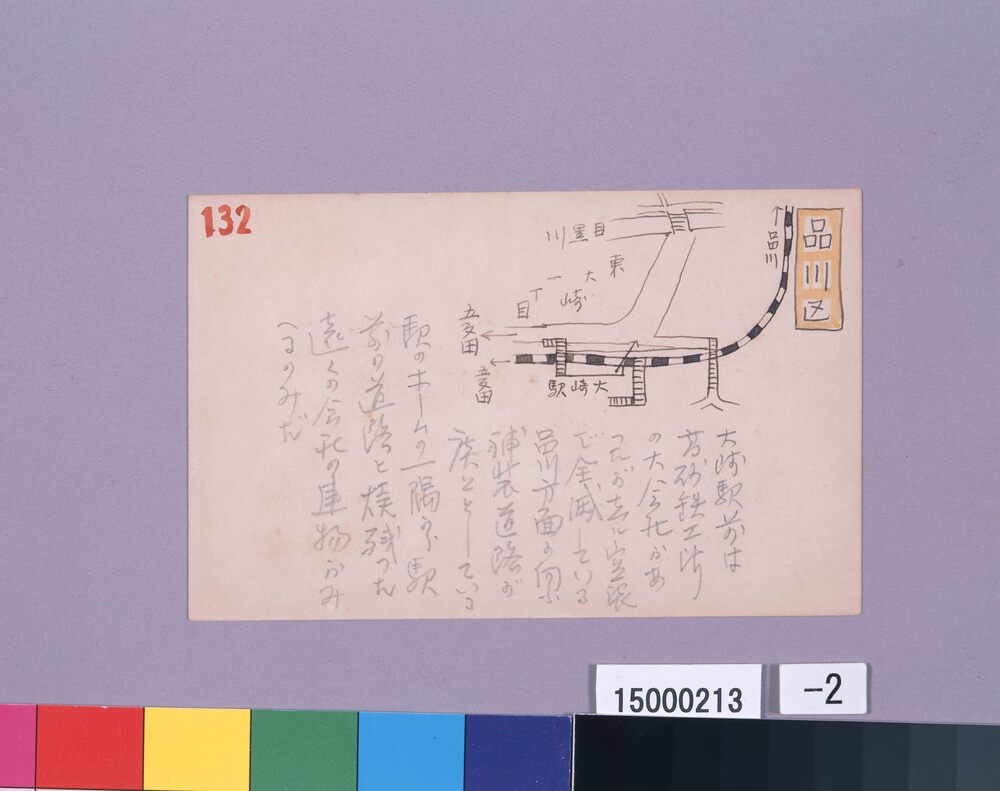 132
品川区
↑品川
目黒川
東
大崎
一丁目
五反田
五反田
大崎駅
大崎駅前は
高砂鉄工所
の大会社があ
つたが共に空襲
で全滅している
品川方面に向ふ
補装道路が
広々としている
駅のホームの一隅から駅
前の道路と焼残つた
遠くの会社の建物がみ
へるのみだ
15000213
-2